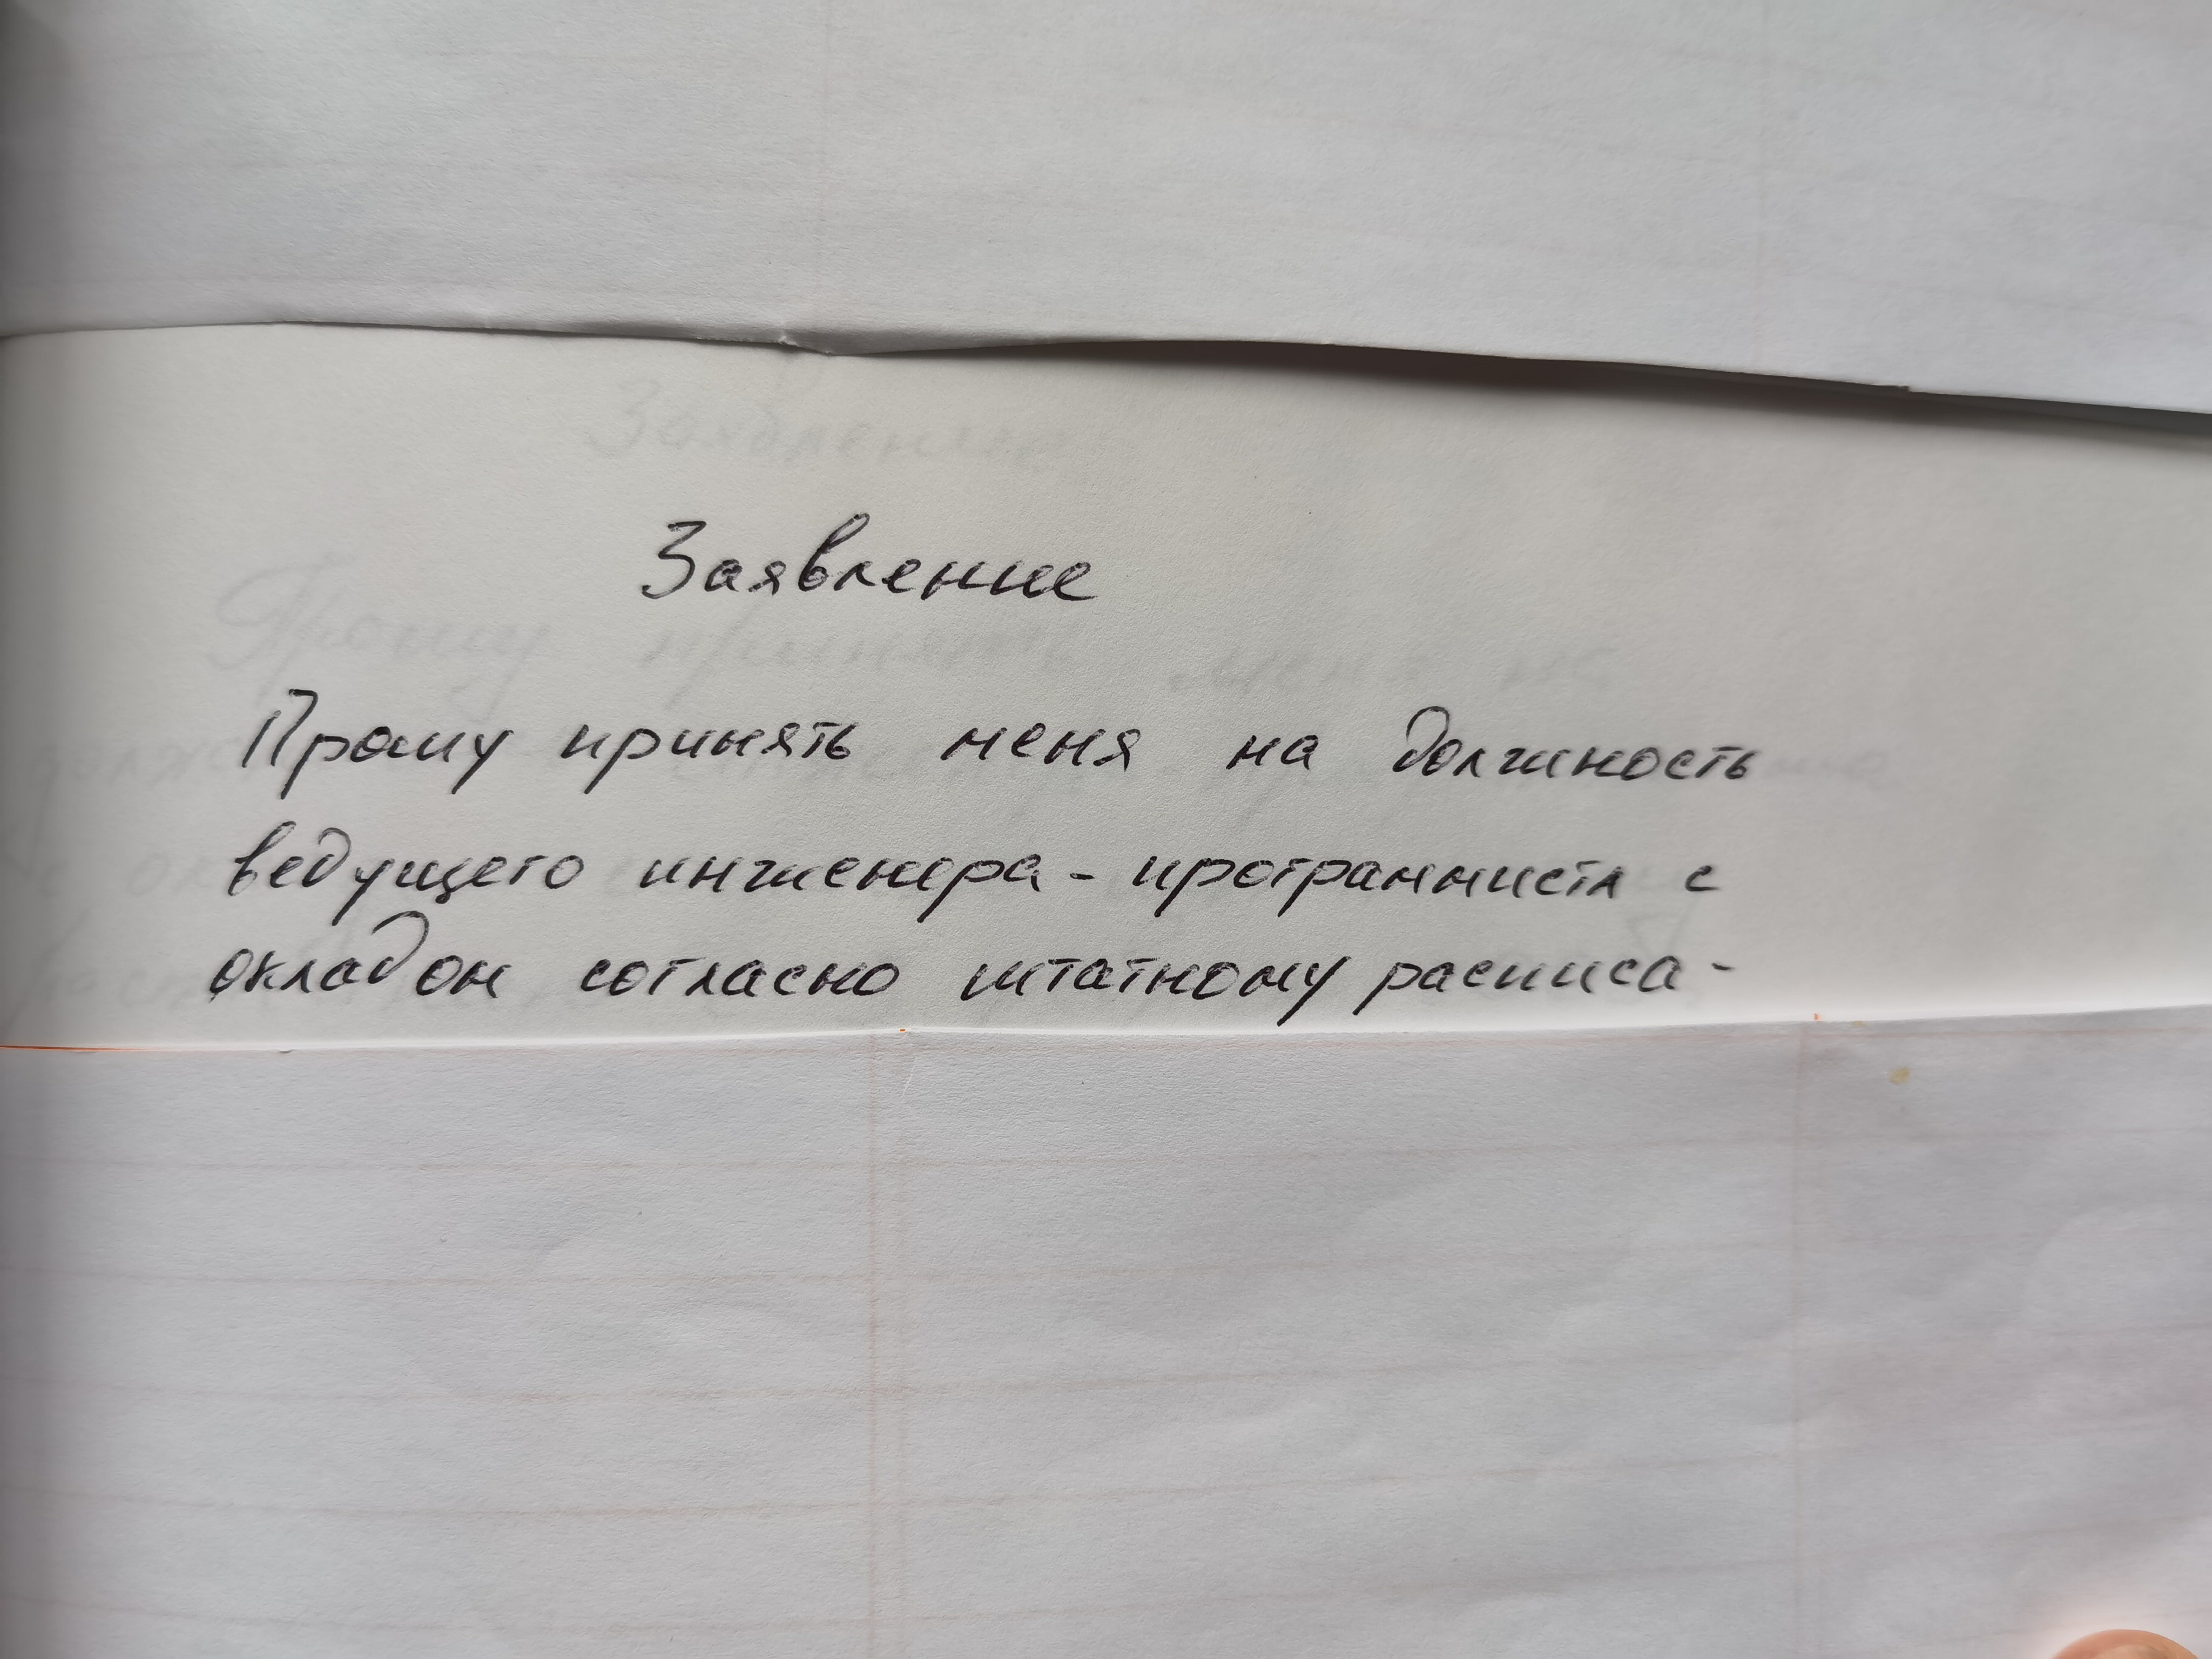 Заявление
Прошу принять меня на должность
ведущего инженера-программиста с
окладом согласно штатному расписа-